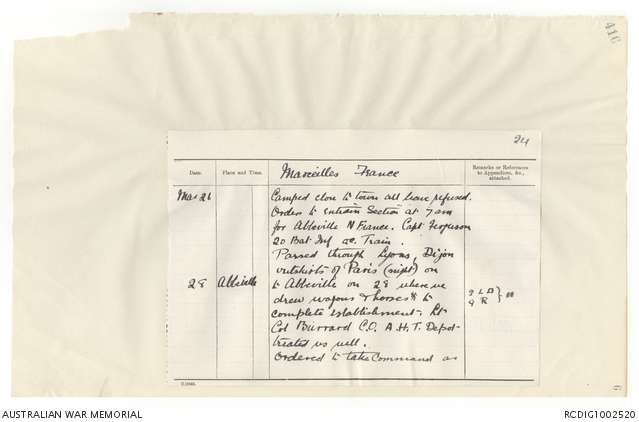 416
24
Date. Place and Time. Marseilles France Remarks or References to Appendices, &c., attached.
Mar 26 Camped close to town all leave refused.
Orders to entrain Section at 7 am
for Abbeville N France. Capt Ferguson
20 Bat Inf oc. Train.
Passed through Lyons, Dijon
outskirts of Paris (night) on
28 Abbeville to Abbeville on 28 where we
drew wagons & horses & to
complete establishment. Lt
Col Burrard C.O. A.H.T. Depot
treated us well.
Ordered to take Command as
AUSTRALIAN WAR MEMORIAL RCDIG1002520